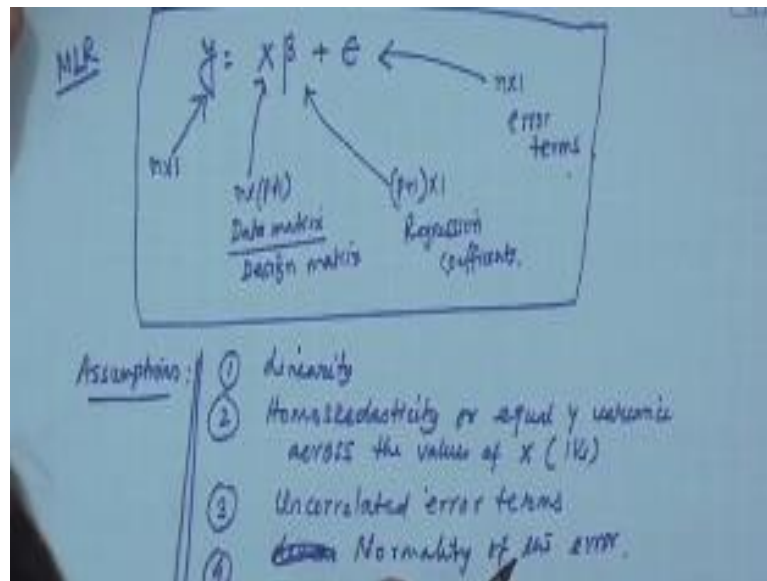 MLR
y = Xβ + e
n×1
n×(p+1)
Data matrix
Design matrix
(p+1)×1
Regression
coefficients.
n×1
error
terms.
Assumptions:
① Linearity
② Homoscedasticity or equal y variance
across the values of X (IVs)
③ Uncorrelated error terms
④ Normality of error.